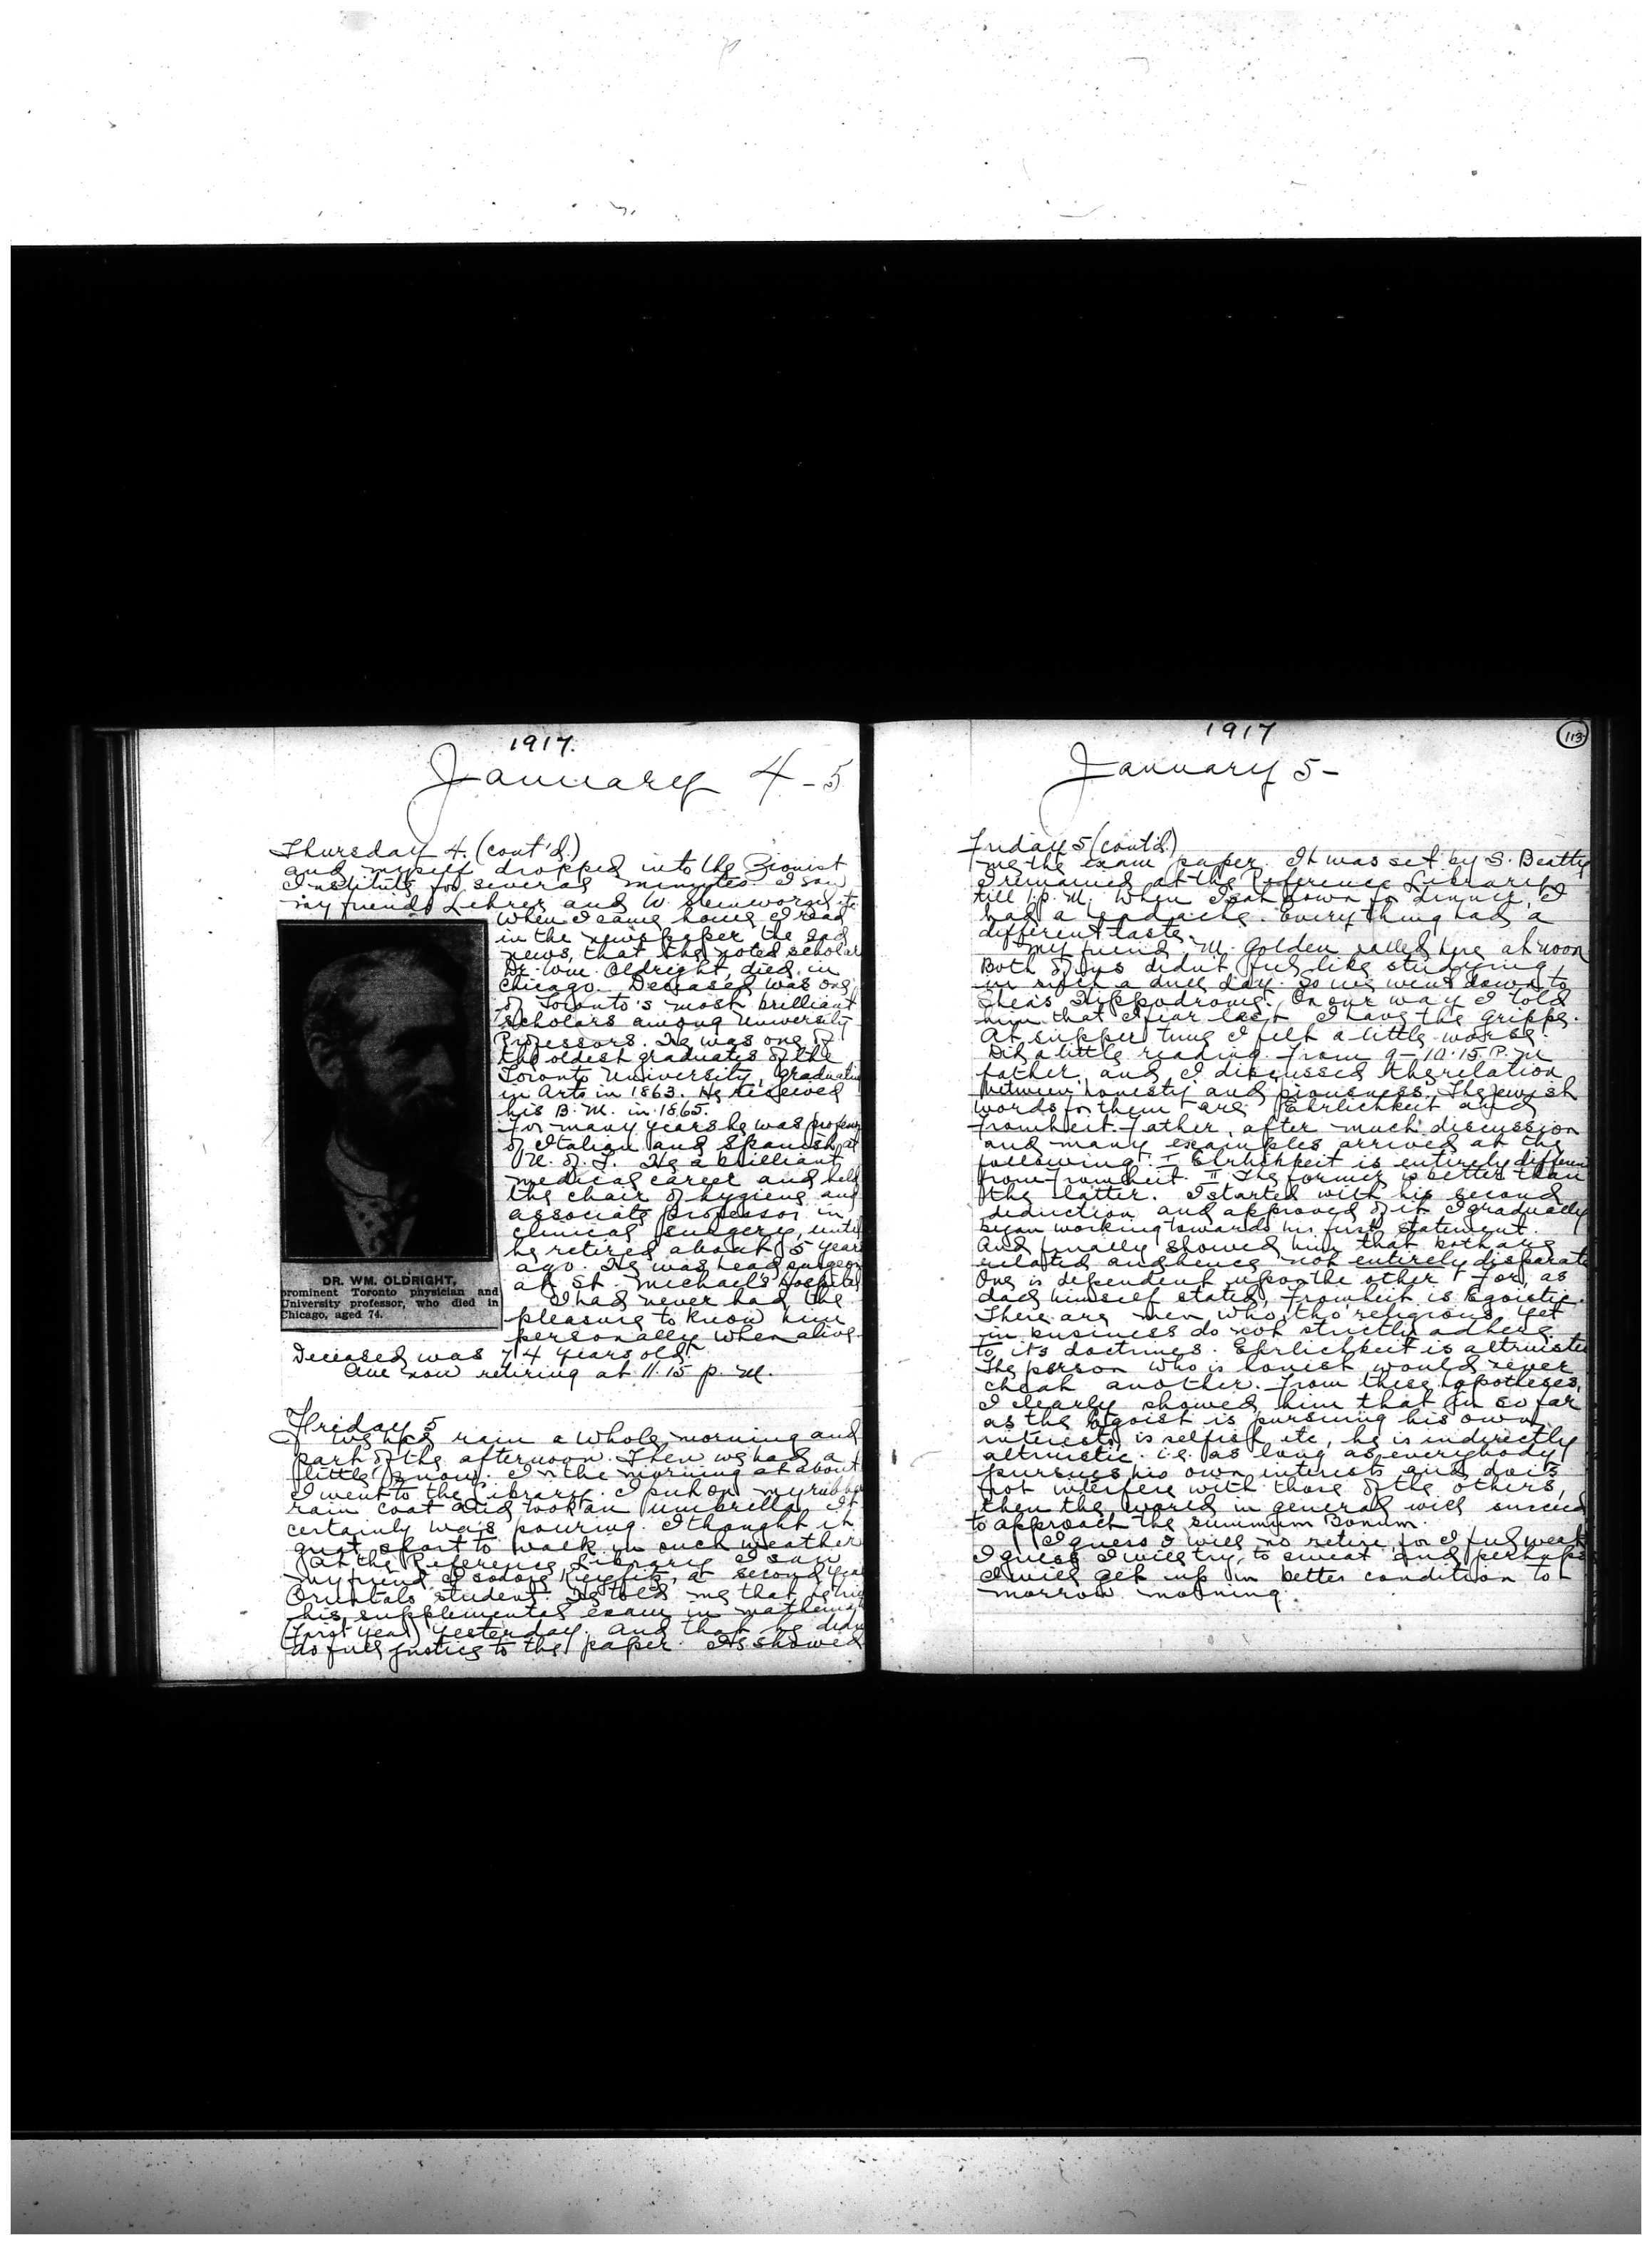 1917.
January 4-5
Thursday 4. (cont'd.)
and myself dropped into the Zionist
Institute for several minutes. I saw
my friends Lehrer and W.
When I came home I read
in the newspaper the sad
news, that the noted scholar
Dr. Wm. Oldright, died in
Chicago. Deceased was one
of Toronto's most brilliant
scholars among University
Professors. He was one of
the oldest graduates of the
Toronto University, graduating
in Arts in 1863. He received
his B.M. in 1865.
For many years he was professor
of Italian and Spanish at
U. of T. He a brilliant
medical career and held
the chair of hygiene and
associate professor in
clinical surgery, until
he retired about 5 years
ago. He was head surgeon
at St. Michael's Hospital
I had never had the
pleasure to know him
personally when alive.
DR. WM. OLDRIGHT,
prominent Toronto physician and
University professor, who died in
Chicago, aged 74.
Deceased was 74 years old.
Am now retiring at 11.15 p.m.
Friday 5
We had rain a whole morning and
part of the afternoon. Then we had a
little snow. In the morning at about
I went to the Library. I put on my rubber
rain coat and took an umbrella. It
certainly was pouring. I thought it
great sport to walk in such weather
At the Reference Library I saw
my friend Isadore a second year
Orientals student. He told me that
his supplemental exam in mathematics
(First Year) yesterday, and that he didn't
do full justice to the paper. He showed
1917
113
January 5-
Friday 5 (cont'd)
me the exam paper. It was set by S. Beatty
I remained at the Reference Library
till 1 p.m. When I sat down to dinner, I
had a headache. Everything had a
different taste.
My friend M. Golden called here at noon
Both of us didn't feel like studying
in such a dull day. So we went down to
Shea's Hippodrome. On our way I told
him that I fear lest I have the grippe.
At supper time I felt a little worse.
Did a little reading. From 9-10.15 P.M
father and I discussed the relation
between honesty and piousness. The Jewish
words for them are Ehrlichkeit and
Fromheit. Father, after much discussion
and many examples arrived at the
following: I Ehrlichkeit is entirely different
from Fromheit. II The former is better than
the latter. I started with his second
deduction and approved of it. I gradually
began working towards his first statement.
And finally showed him that both are
related and hence not entirely disparate
One is dependent upon the other. For, as
dad himself stated, Fromheit is Egoistic.
There are men who, tho' religious, yet
in business do not strictly adhere
to its doctrines. Ehrlichkeit is altruistic
The person who is honest would never
cheat another. From these hypotheses,
I clearly showed him that in so far
as the Egoist is pursuing his own
interests, is selfish etc, he is indirectly
altruistic. i.e. as long as everybody
pursues his own interests and does
not interfere with those of the others,
then the world in general will succeed
to approach the summum Bonum.
I guess I will retire, for I feel weak
I guess I will try to sweat and perhaps
I will get up in better condition to-
morrow morning.